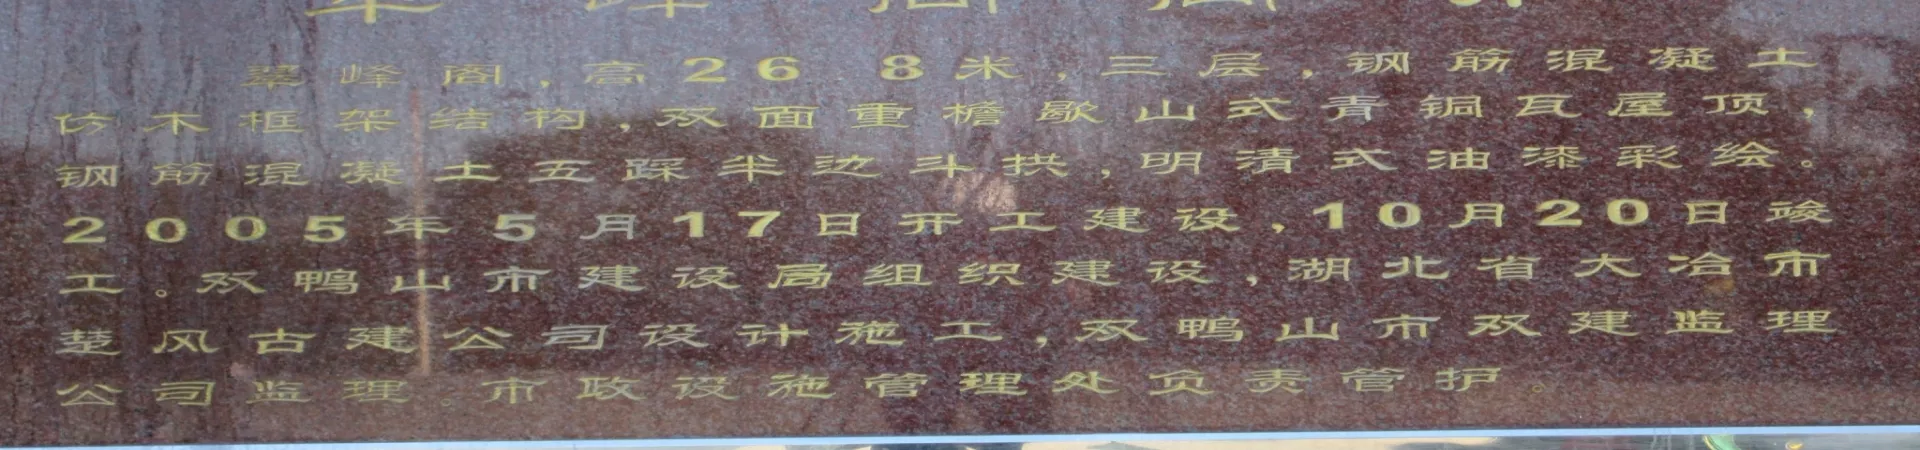 翠峰阁，高26 8米，三层，钢筋混凝土
仿木框架结构，双面重檐歇山式青铜瓦屋顶，
钢筋混凝土五踩半边斗拱，明清式油漆彩绘。
2005年5月17日开工建设，10月20日竣
工。双鸭山市建设局组织建设，湖北省大冶市
楚风古建公司设计施工，双鸭山市双建监理
公司监理。市政设施管理处负责管护。